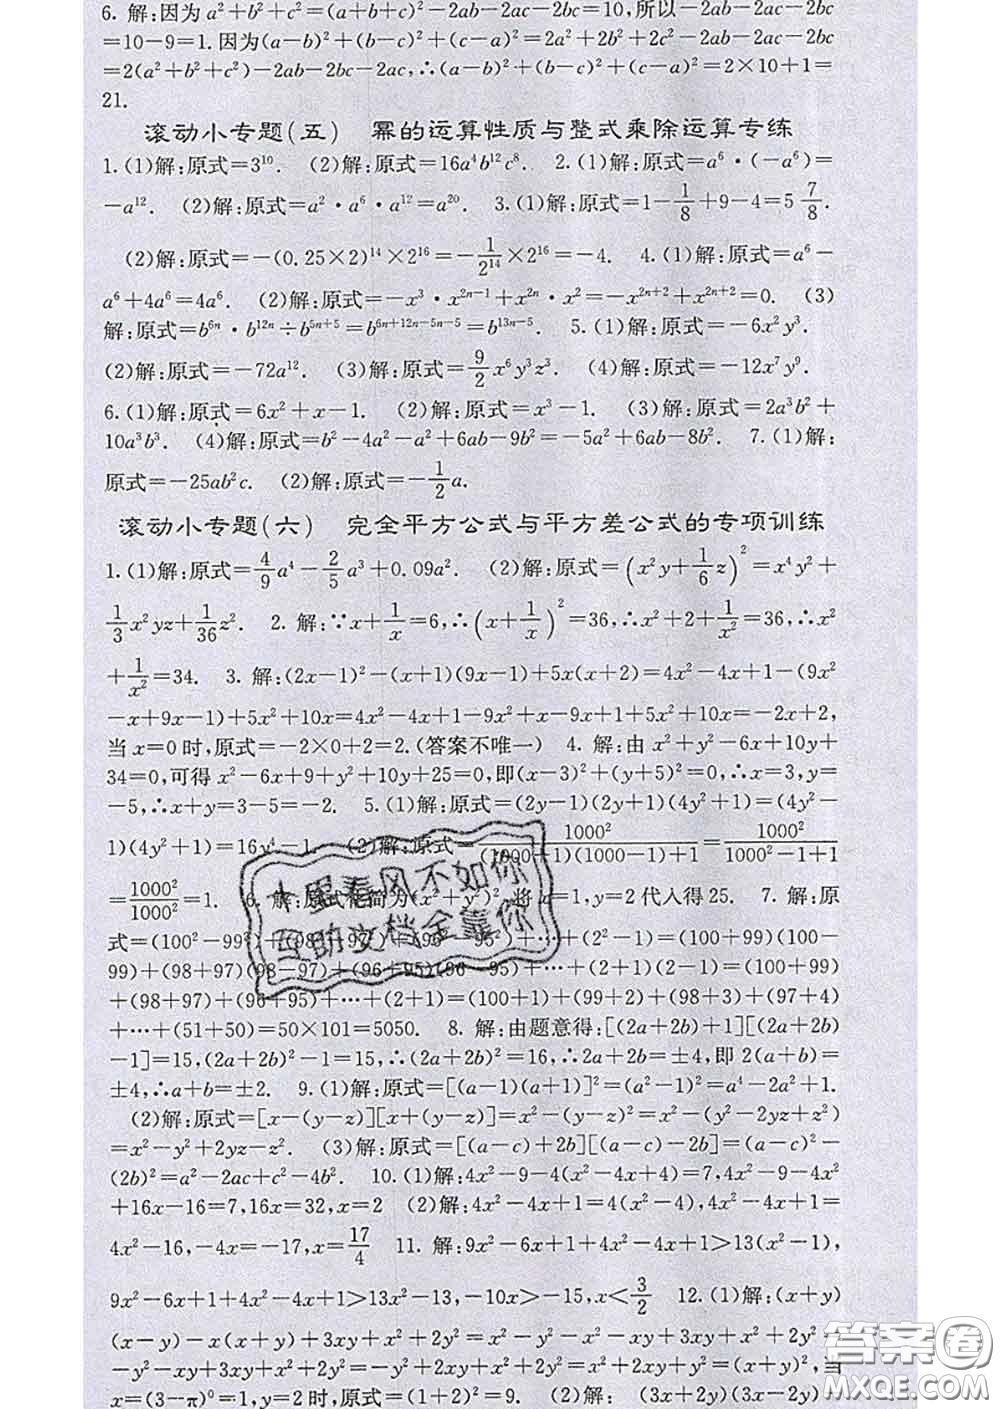 6. 解:因为 a²+b²+c²=(a+b+c)²-2ab-2ac-2bc=10,所以-2ab-2ac-2bc
=10-9=1.因为(a-b)²+(b-c)²+(c-a)²=2a²+2b²+2c²-2ab-2ac-2bc
=2(a²+b²+c²)-2ab-2bc-2ac,∴(a-b)²+(b-c)²+(c-a)²=2×10+1=
21.
滚动小专题(五) 幂的运算性质与整式乘除运算专练
1.(1)解:原式=3¹⁰. (2)解:原式=16a⁴b¹²c⁸. 2.(1)解:原式=a⁶·(-a⁶)=
-a¹². (2)解:原式=a²·a⁶·a¹²=a²⁰. 3.(1)解:原式=1-1/8+9-4=5 7/8.
(2)解:原式=-(0.25×2)¹⁴×2¹⁶=-1/2¹⁴×2¹⁶=-4. 4.(1)解:原式=a⁶-
a⁶+4a⁶=4a⁶. (2)解:原式=-x³·x²ⁿ⁻¹+x²ⁿ·x²=-x²ⁿ⁺²+x²ⁿ⁺²=0. (3)
解:原式=b⁶ⁿ·b¹²ⁿ÷b⁵ⁿ⁺⁵=b⁶ⁿ⁺¹²ⁿ⁻⁵ⁿ⁻⁵=b¹³ⁿ⁻⁵. 5.(1)解:原式=-6x²y³.
(2)解:原式=-72a¹². (3)解:原式=9/2x⁶y³z³. (4)解:原式=-12x⁷y⁹.
6.(1)解:原式=6x²+x-1. (2)解:原式=x³-1. (3)解:原式=2a³b²+
10a³b³. (4)解:原式=b²-4a²-a²+6ab-9b²=-5a²+6ab-8b². 7.(1)解:
原式=-25ab²c. (2)解:原式=-1/2a.
滚动小专题(六) 完全平方公式与平方差公式的专项训练
1.(1)解:原式=4/9a⁴-2/5a³+0.09a². (2)解:原式=(x²y+1/6z)²=x⁴y²+
1/3x²yz+1/36z². 2. 解:∵x+1/x=6,∴(x+1/x)²=36,∴x²+2+1/x²=36,∴x²
+1/x²=34. 3. 解:(2x-1)²-(x+1)(9x-1)+5x(x+2)=4x²-4x+1-(9x²
-x+9x-1)+5x²+10x=4x²-4x+1-9x²+x-9x+1+5x²+10x=-2x+2,
当 x=0 时,原式=-2×0+2=2.(答案不唯一) 4. 解:由 x²+y²-6x+10y+
34=0,可得 x²-6x+9+y²+10y+25=0,即(x-3)²+(y+5)²=0,∴x=3,y=
-5,∴x+y=3-5=-2. 5.(1)解:原式=(2y-1)(2y+1)(4y²+1)=(4y²-
1)(4y²+1)=16y⁴-1. (2)解:原式=1000²/(1000+1)(1000-1)+1=1000²/1000²-1+1
=1000²/1000²=1. 6. 解:原式化简为(x²+y²)²,将 x=1,y=2 代入得 25. 7. 解:原
式=(100²-99²)+(98²-97²)+(96²-95²)+…+(2²-1)=(100+99)(100-
99)+(98+97)(98-97)+(96+95)(96-95)+…+(2+1)(2-1)=(100+99)
+(98+97)+(96+95)+…+(2+1)=(100+1)+(99+2)+(98+3)+(97+4)
+…+(51+50)=50×101=5050. 8. 解:由题意得:[(2a+2b)+1][(2a+2b)
-1]=15,(2a+2b)²-1=15,∴(2a+2b)²=16,∴2a+2b=±4,即 2(a+b)=
±4,∴a+b=±2. 9.(1)解:原式=[(a-1)(a+1)]²=(a²-1)²=a⁴-2a²+1.
(2)解:原式=[x-(y-z)][x+(y-z)]=x²-(y-z)²=x²-(y²-2yz+z²)
=x²-y²+2yz-z². (3)解:原式=[(a-c)+2b][(a-c)-2b]=(a-c)²-
(2b)²=a²-2ac+c²-4b². 10.(1)解:4x²-9-4(x²-4x+4)=7,4x²-9-4x²
+16x-16=7,16x=32,x=2 (2)解:4x²-4x+1=4(x²-4),4x²-4x+1=
4x²-16,-4x=-17,x=17/4 11. 解:9x²-6x+1+4x²-4x+1>13(x²-1),
9x²-6x+1+4x²-4x+1>13x²-13,-10x>-15,x<3/2 12.(1)解:(x+y)
(x-y)-x(x+y)+3xy+x²+2y²=x²-y²-x²-xy+3xy+x²+2y²=
-y²-xy+3xy+x²+2y²=-y²+2xy+x²+2y²=x²+2xy+y²=(x+y)²,当
x=(3-π)⁰=1,y=2 时,原式=(1+2)²=9. (2)解: (3x+2y)(3x-2y)-
十里春风不如你
互助文档全靠你
答案圈
MXQE.COM